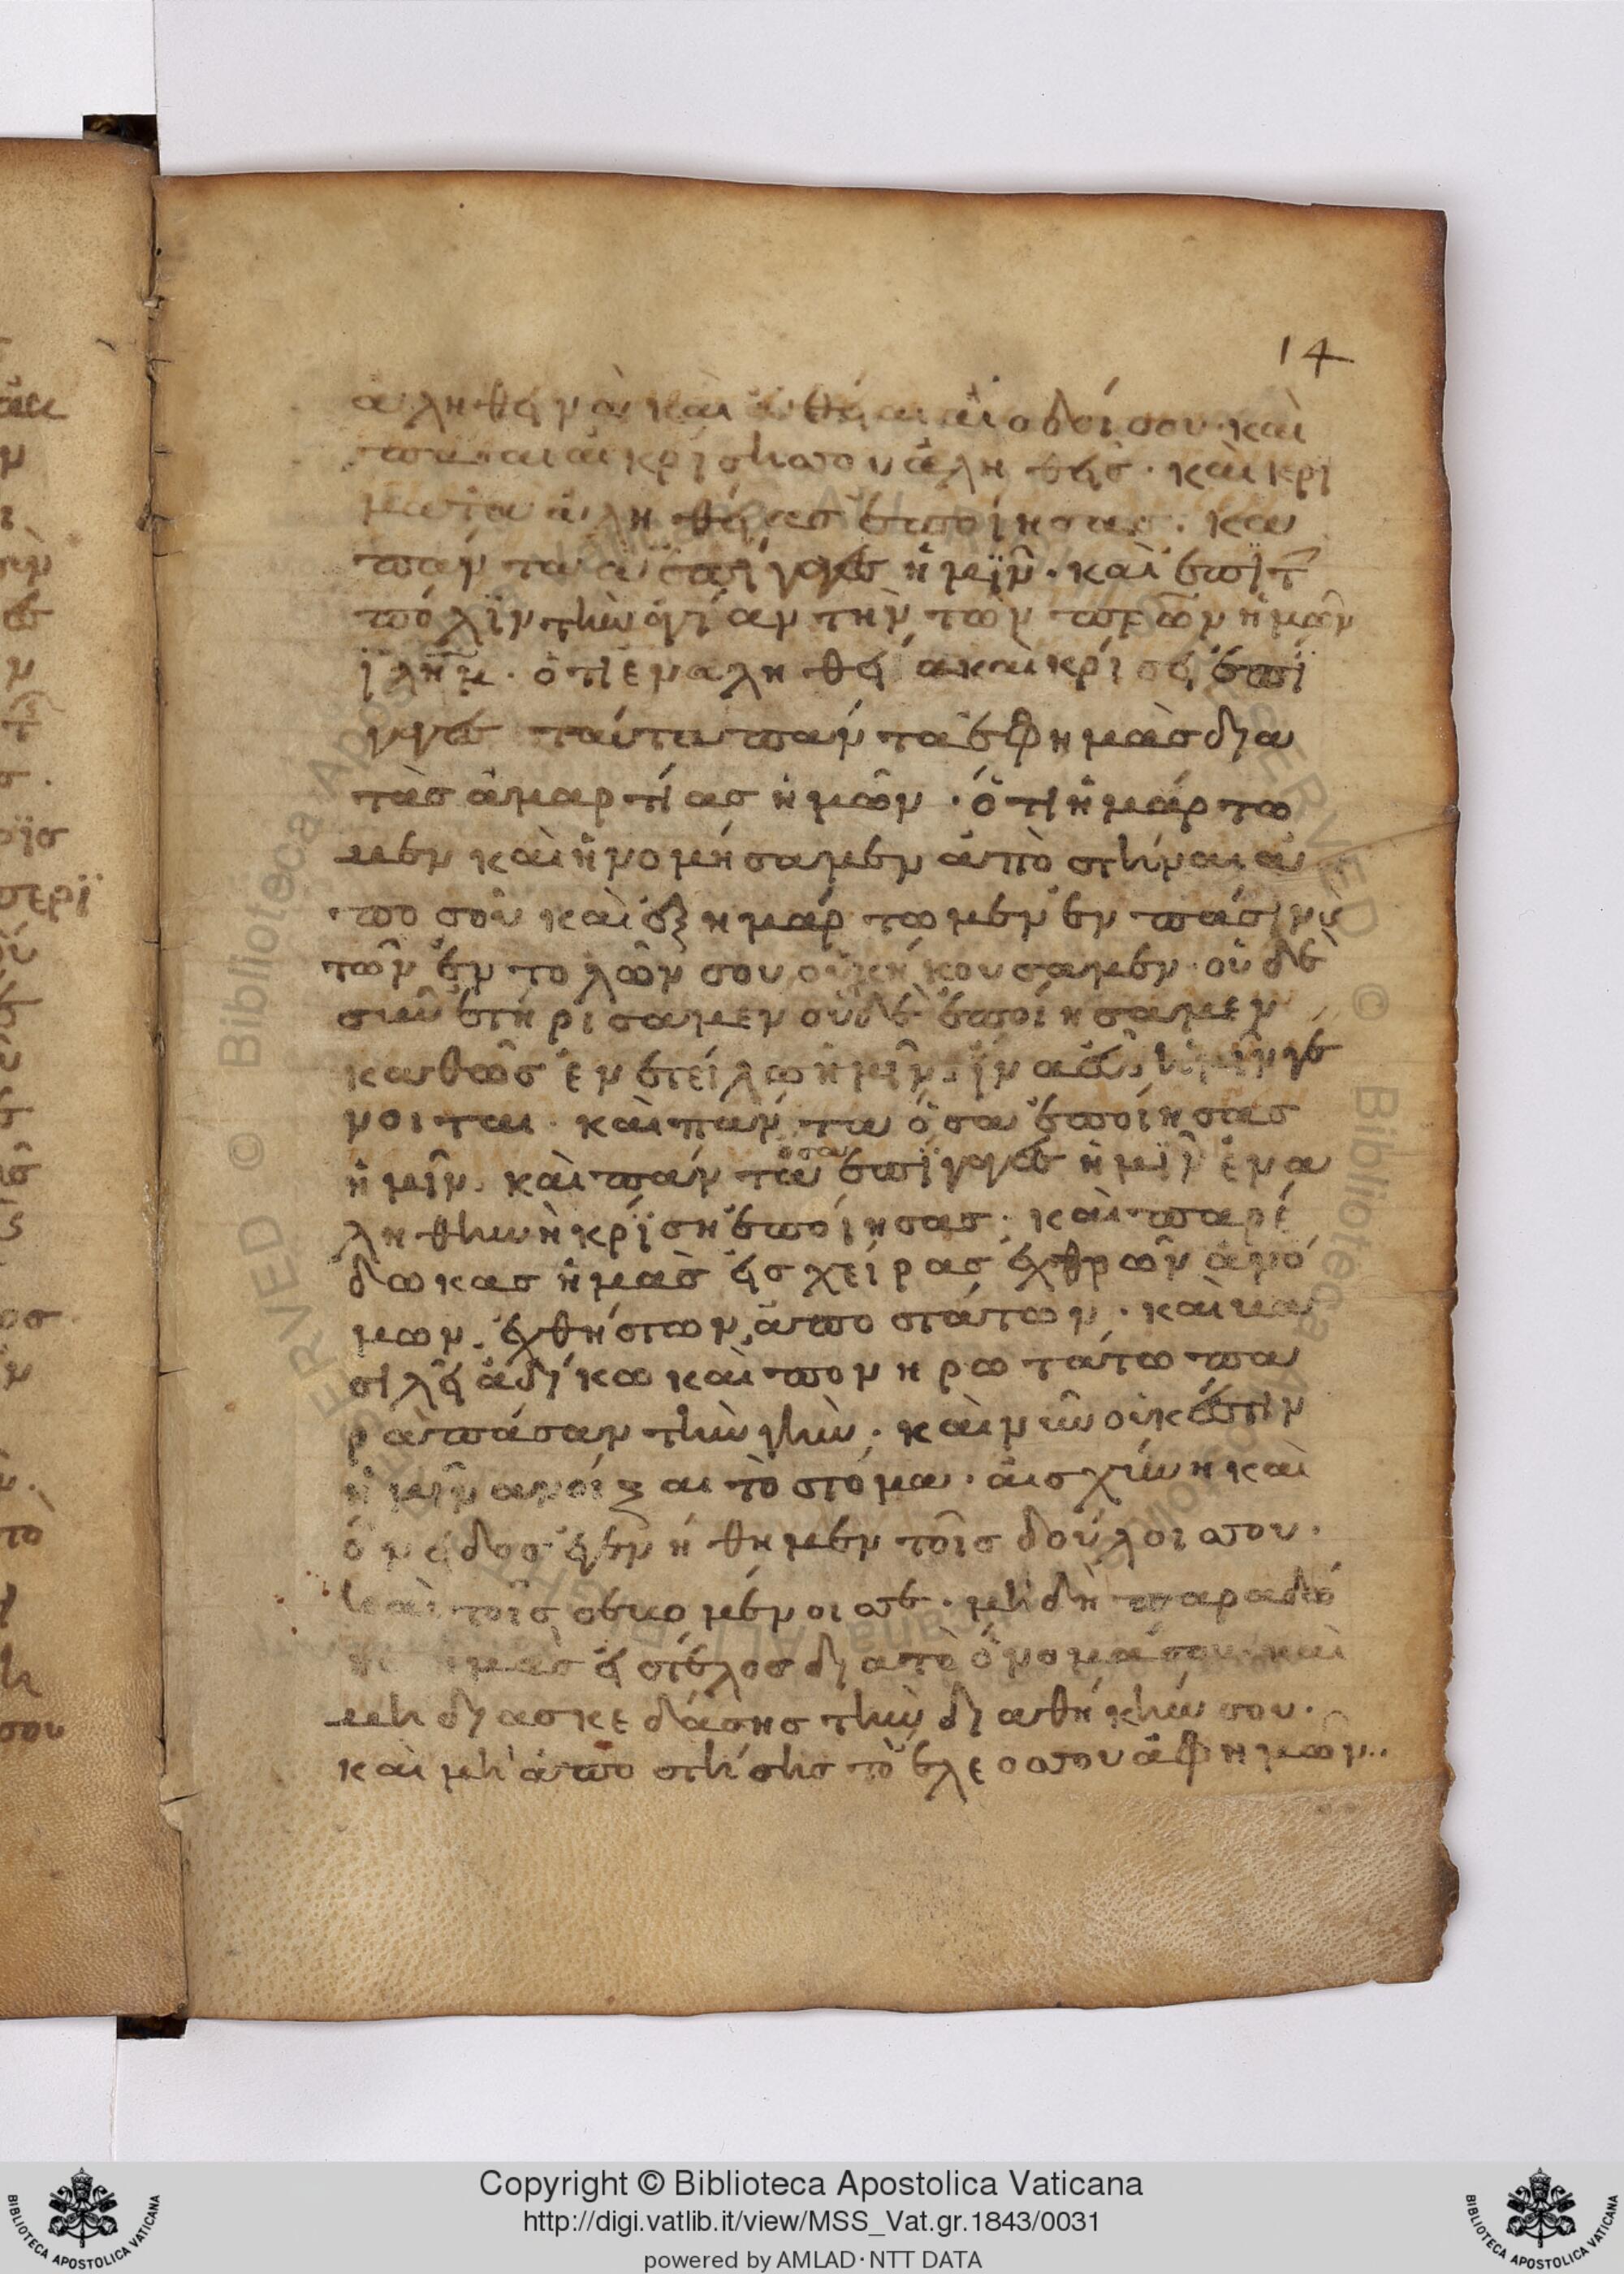 14
ἀληθηνὰ καὶ εὐθεῖαι αἱ οδοί σου· καὶ
πᾶσαι αἱ κρίσησπου ἀληθεῖς· καὶ κρί
ματα ἀληθείασ ἐποίησας· κα
πάντα ἃ ἐπίγαγεσ ἡμῖν· καὶ ἐπὶ τ
πόλιν τὴν ἁγίαν τὴν τῶν πρῶν ἡμῶν
ϊλῆμ· ὁτι ἐν αληθεία καὶ κρίσει ἐπί
γαγες ταύτα πάντα ἐφ ημὰσ δια
τὰσ ἁμαρτίασ ἡμῶν· ὅτι ἡμάρτω
μεν καὶ ἠνομήσαμεν ἀπὸστῆναι ἀ
πο σοῦ καὶ ἐξημάρτωμεν ἐν πάσιν κ
τῶν ἐντολῶν σου οὐκ ήκουσαμεν· οὐδὲ
συνετήρισαμεν οὐδὲ ἐποίησαμεν
καθῶσ ἐνετείλω ἡμῖν ἵνα εὖ ἡμῖν γέ
νοιται· καὶ πάντα ὁσα ἐποίησας
ἡμῖν· καὶ πάντα ὅσα ἐπίγαγεσ ἡμῖν ἐν α
ληθηνὴ κρίση ἐποίησας· καὶ παρέ
δωκας ἡμὰσ εἰσ χείρας ἐχθρῶν ἀνό
μων, ἐχθήστων, ἀποστάτων· καὶ βα
σιλεῖ ἀδίκω καὶ πονηρωτάτω πα
ρὰ πάσαν τὴν γὴν· καὶ νῦν οὐκ ἔστιν
ἡμῖν ανοίξαι τὸ στόμα· ἀισχύνη καὶ
ὄνειδοσ ἐγενήθημεν τοῖς δούλοισπου·
καὶ τοῖς σεβομένοισπε· μὴ δὴ παραδώ
ησ ἡμὰσ εἰσ τέλοσ δια τὸ ὄνομά σου καὶ
μὴ διασκεδάσησ τὴν διαθήκην σου·
καὶ μὴ ἀποστήσησ τὸ ἔλεοσπου ἀφ ημῶν··
Copyright © Biblioteca Apostolica Vaticana
http://digi.vatlib.it/view/MSS_Vat.gr.1843/0031
powered by AMLAD·NTT DATA